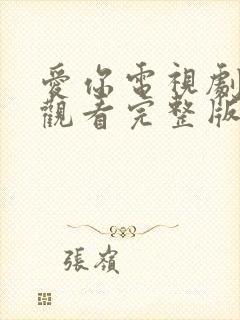 愛你電視劇
觀看完整版
張嶺